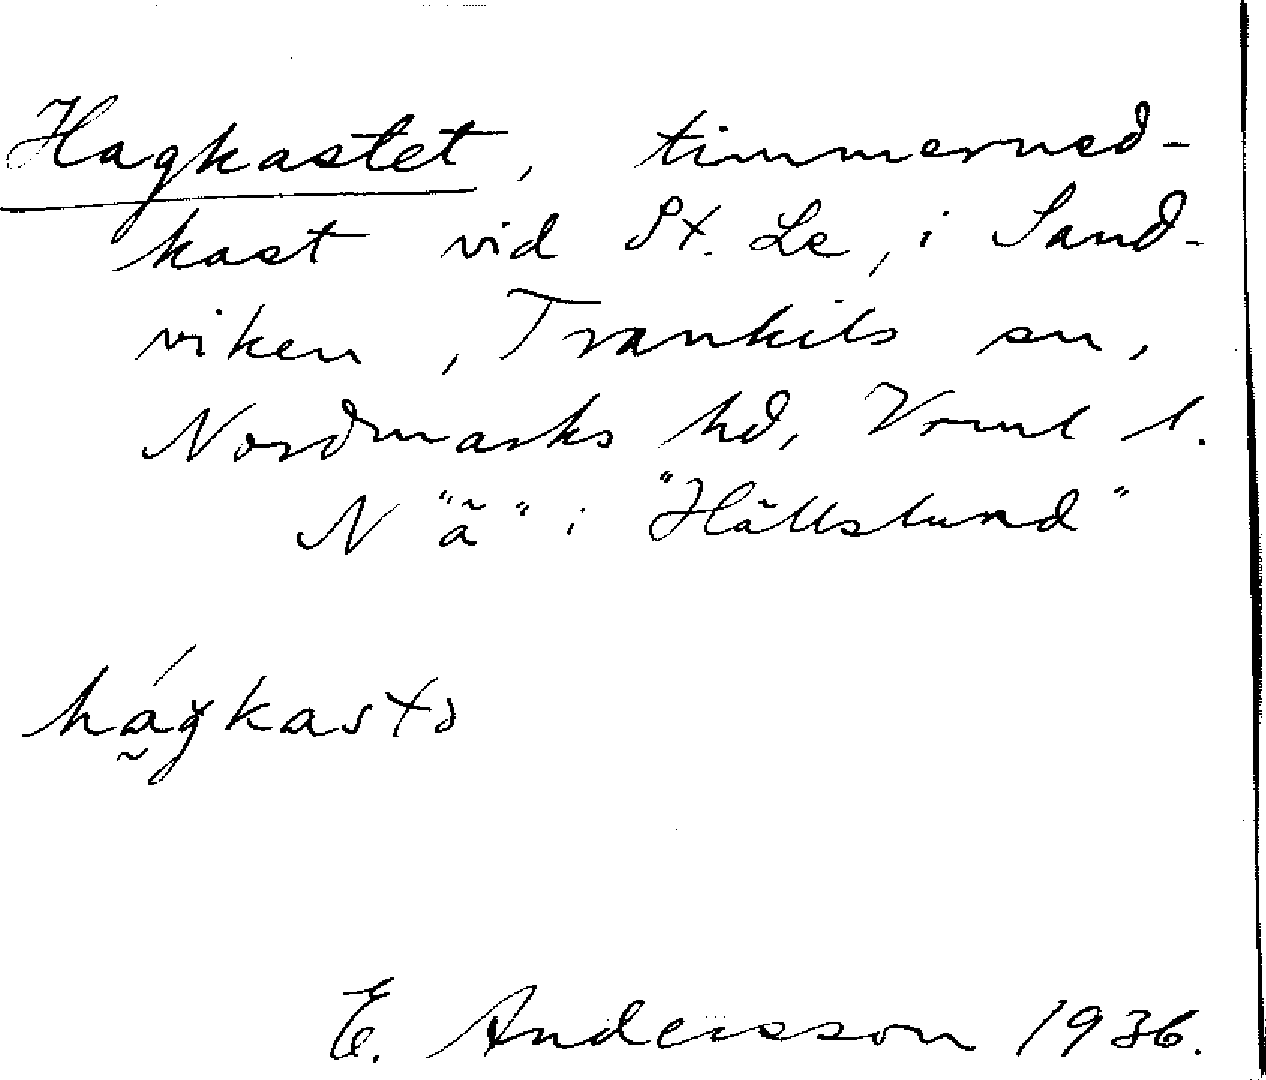 Hagkastet, timmerned-
kast vid St. Le, i Sand-
viken, Trankils sn,
Nordmarks hd, Vrml l.
N "ã" i "Hällslund"
E. Andersson 1936.